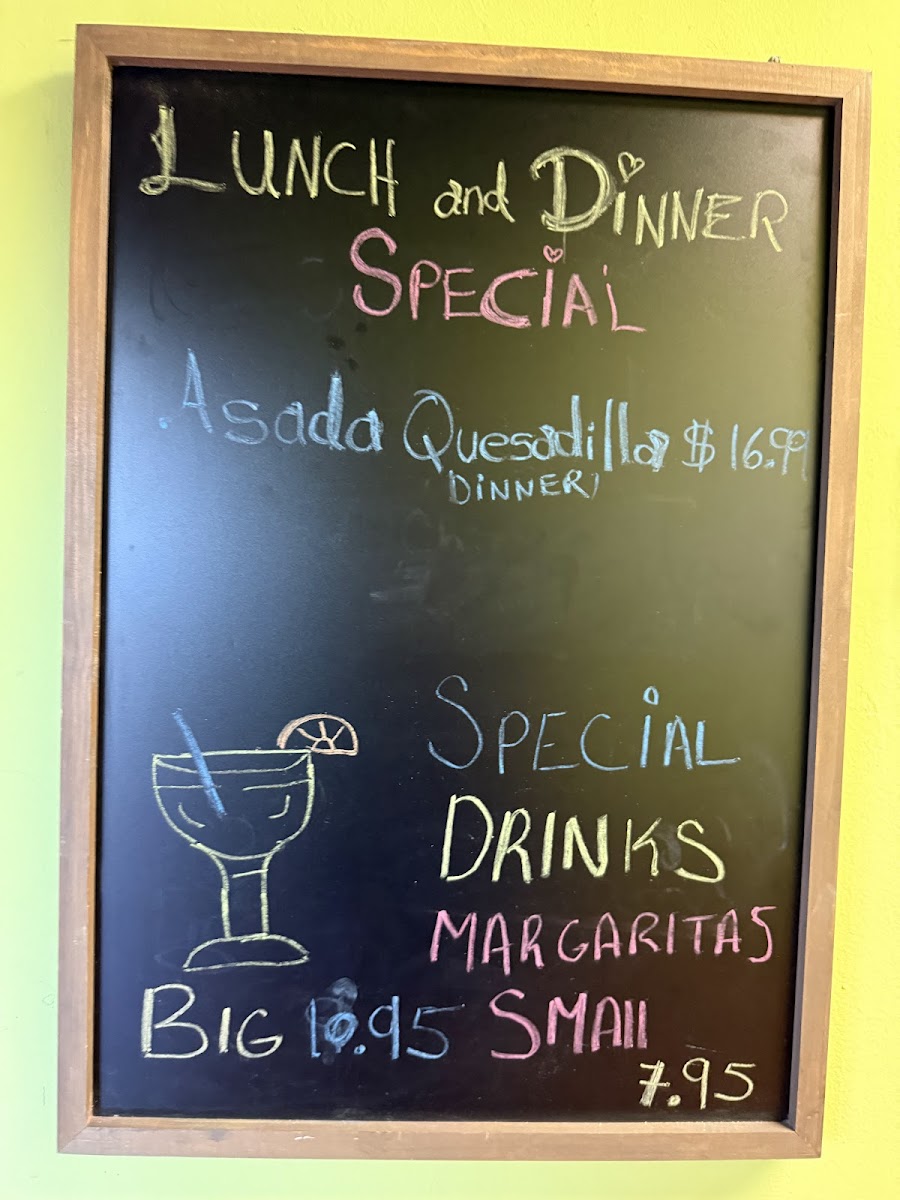 LUNCH and DINNER
SPECIAL
.Asada Quesadilla $16.99
DINNER)
SPECIAL
DRINKS
MARGARITAS
BIG 10.95 SMAll
7.95